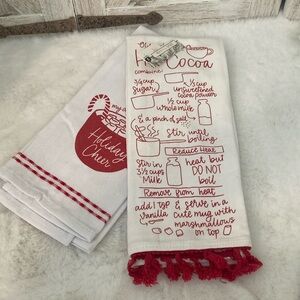 Hot Cocoa
combine
3/4 cup
Sugar
1/2 cup
unsweetened
cocoa powder
1/2 cup
whole milk
& a pinch of salt
Stir until
boiling
Reduce Heat
Stir in
3 1/2 cups
Milk
heat but
DO NOT
boil
Remove from heat
add 1 tsp
Vanilla
& serve in a
cute mug with
marshmallows
on top
Holiday
Cheer